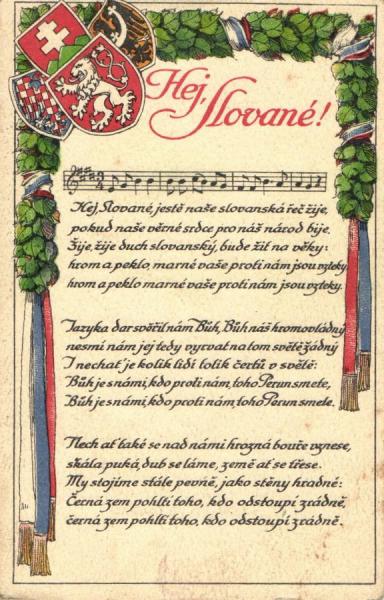 Hej, Slované!
Hej, Slované, jestě naše slovanská řeč žije,
pokud naše věrné srdce pro náš národ bije.
Žije, žije duch slovanský, bude žít na věky:
hrom a peklo, marné vaše proti nám jsou vzteky.
hrom a peklo, marné vaše proti nám jsou vzteky.
Jazyka dar svěřil nám Bůh, Bůh náš hromovládný
nesmí nám jej tedy vyrvat na tom světě žádný
I nechať je kolik lidí tolik čertů v světě:
Bůh je s námi, kdo proti nám, toho Perun smete,
Bůh je s námi, kdo proti nám, toho Perun smete.
Nech ať také se nad námi hrozná bouře vznese,
skála puká, dub se láme, země ať se třese.
My stojíme stále pevně, jako stěny hradné:
Černá zem pohltí toho, kdo odstoupí zrádně,
černá zem pohltí toho, kdo odstoupí zrádně.